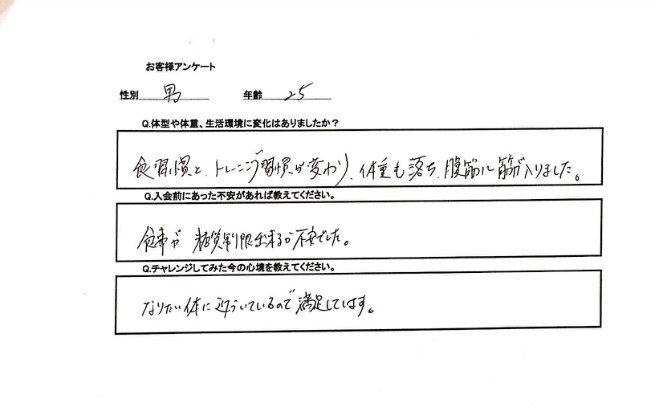 お客様アンケート
性別 男 年齢 25
Q.体型や体重、生活環境に変化はありましたか？
食習慣と、トレーニング習慣が変わり、体重も落ち、腹筋に筋が入りました。
Q.入会前にあった不安があれば教えてください。
食事が 糖質制限出来るか不安でした。
Q.チャレンジしてみた今の心境を教えてください。
なりたい体に近づいているので満足しています。